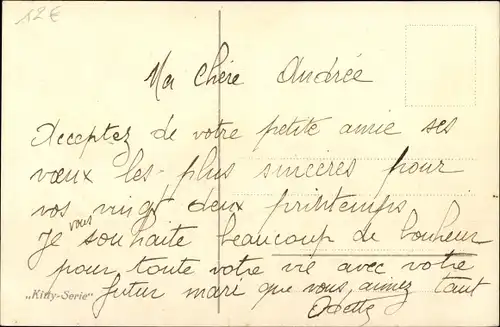 12€
Ma Chère Andrée
Acceptez de votre petite amie ses
vœux les plus sincères pour
vos vingt deux printemps
Je vous souhaite beaucoup de bonheur
pour toute votre vie avec votre
futur mari que vous, aimez tant
Odette
„Kitty-Serie"